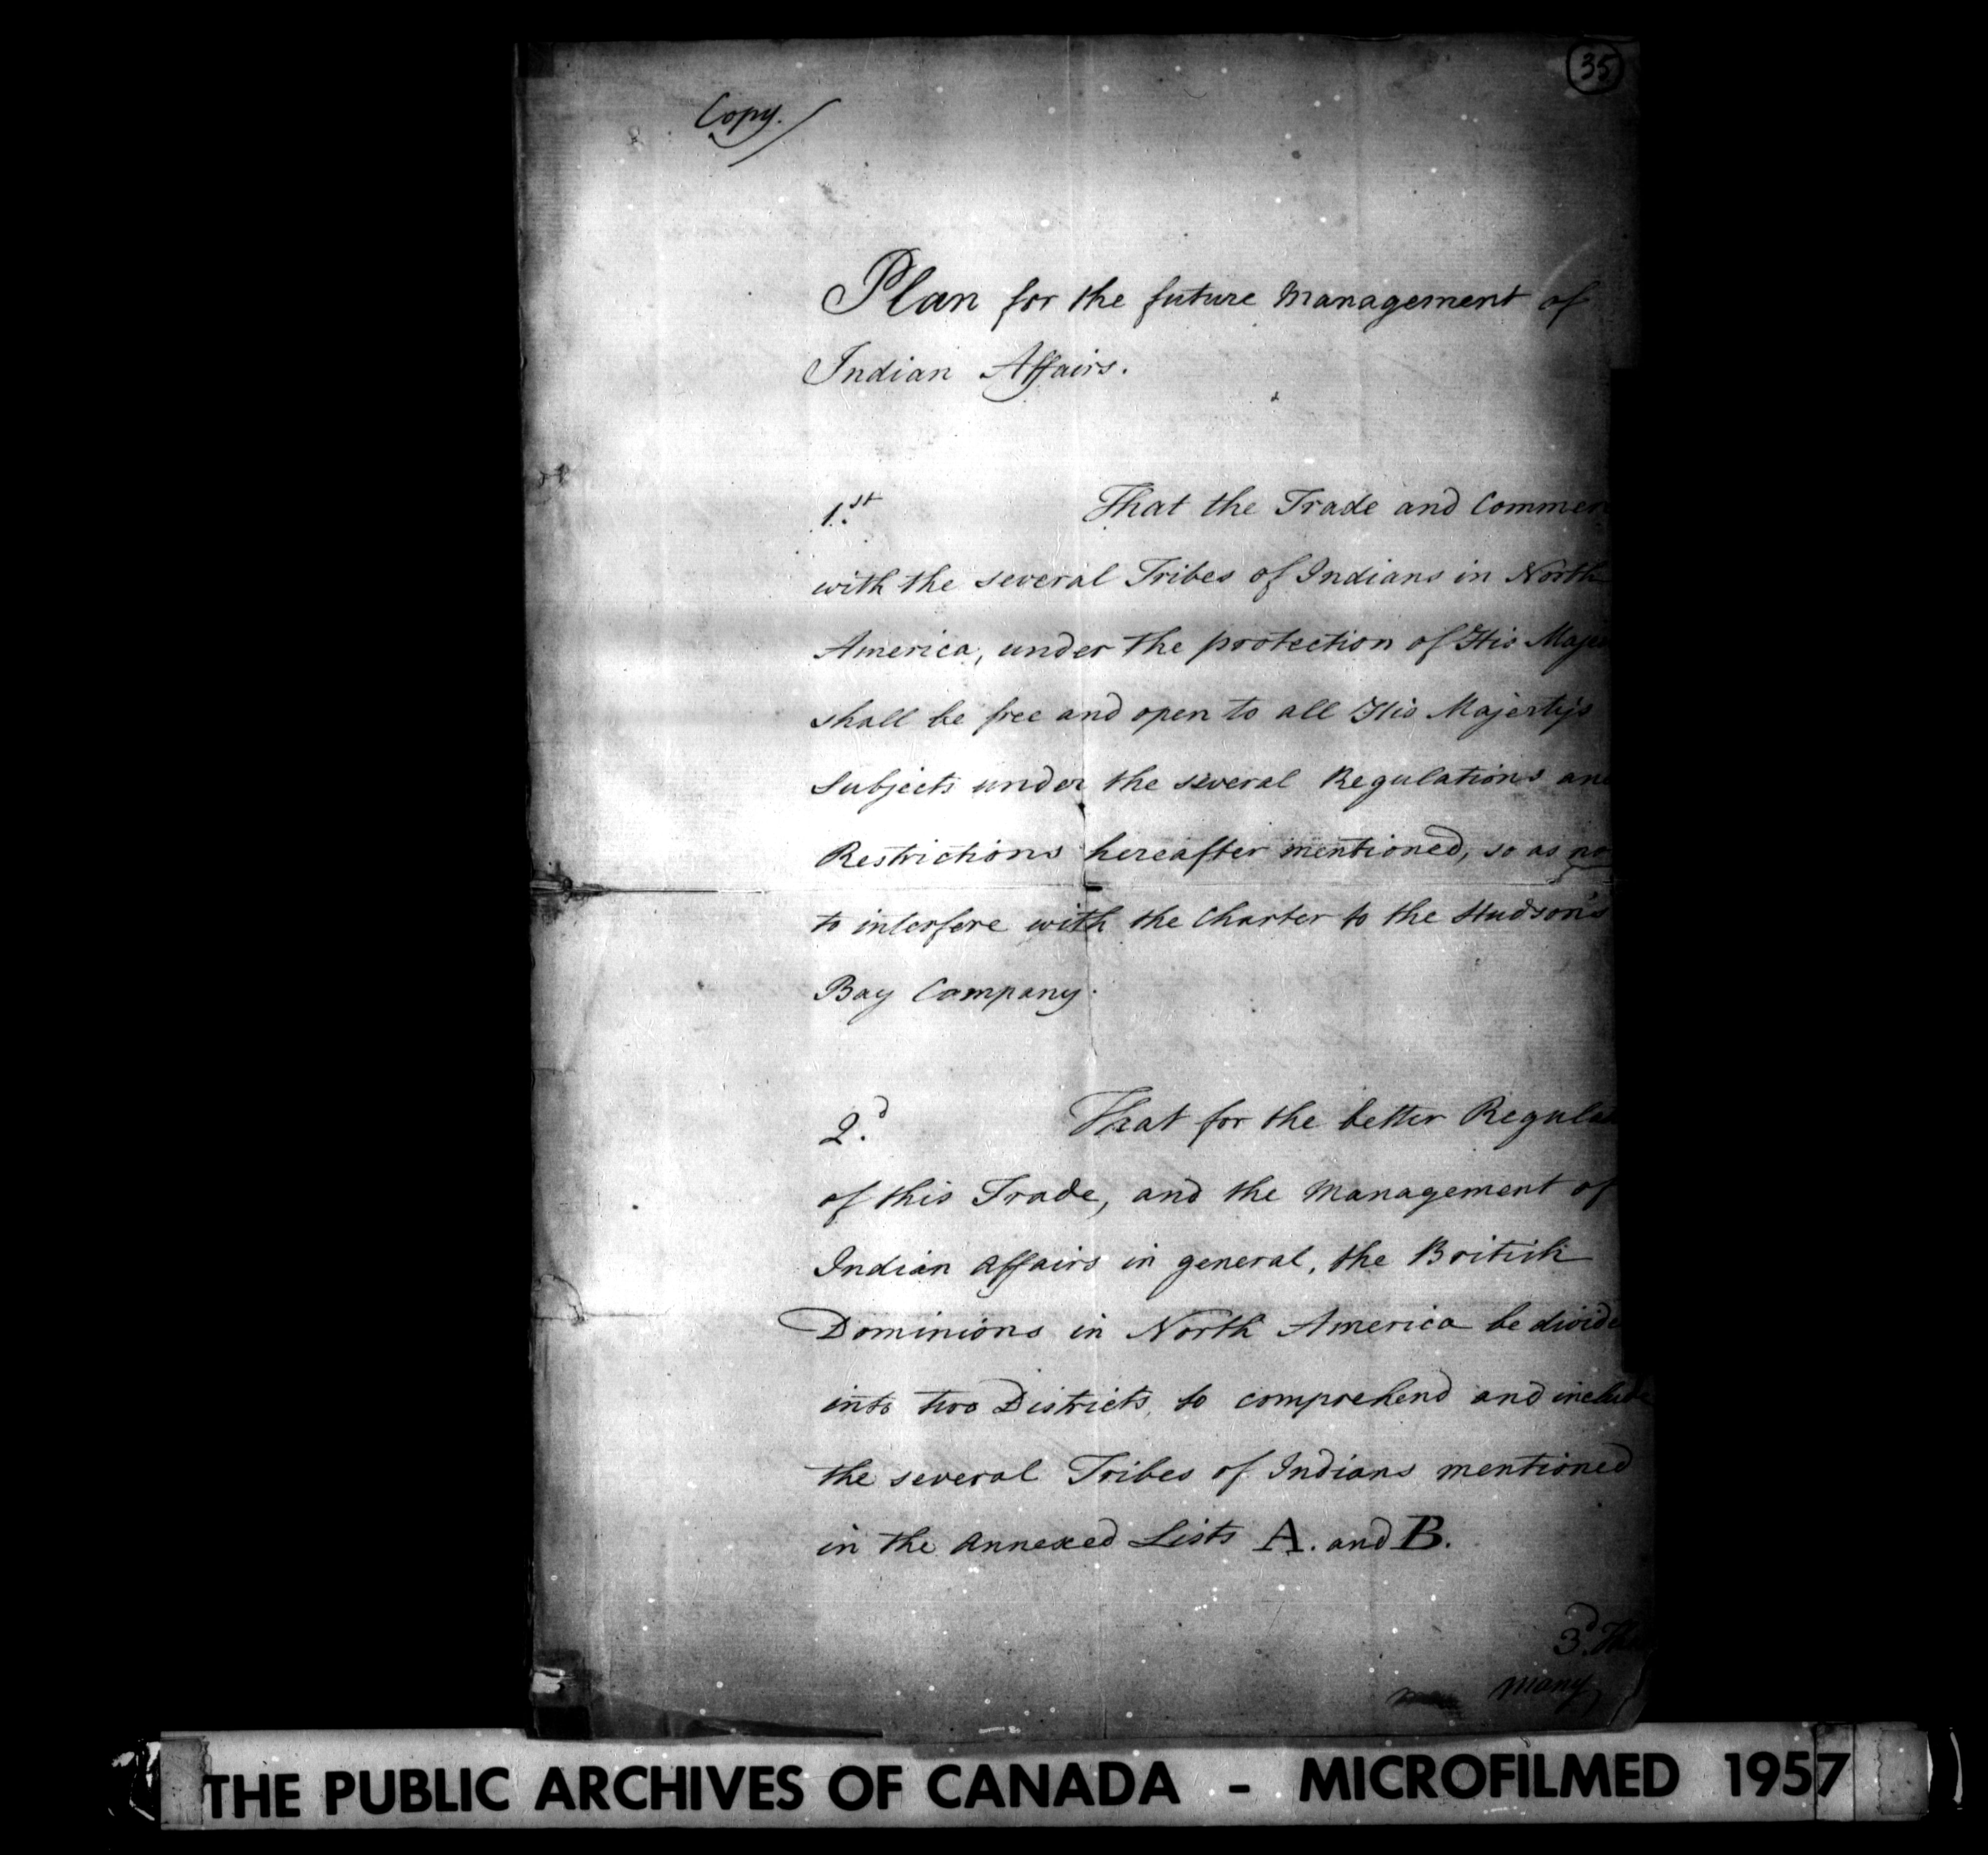 35
Copy.
Plan for the future Management of
Indian Affairs.
1.st That the Trade and Commer
with the several Tribes of Indians in North
America, under the protection of His Maje
shall be free and open to all His Majesty's
Subjects under the several Regulations and
Restrictions hereafter mentioned, so as no
to interfere with the Charter to the Hudson's
Bay Company.
2.d That for the better Regula
of this Trade, and the Management of
Indian Affairs in general, the British
Dominions in North America be divide
into two Districts, to comprehend and include
the several Tribes of Indians mentioned
in the Annexed Lists A. and B.
3.d Tha
many
THE PUBLIC ARCHIVES OF CANADA - MICROFILMED 1957